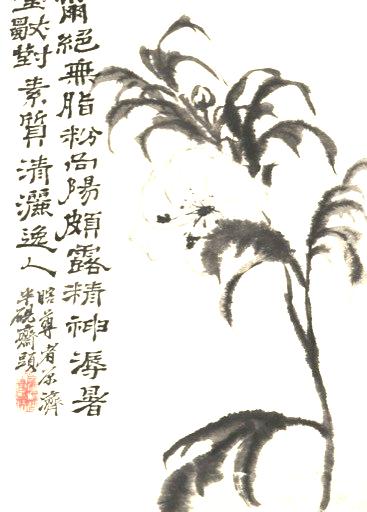 絕無脂粉向陽頗露精神溽暑
對素質清灑逸人
瞎尊者原濟
半硯齋頭